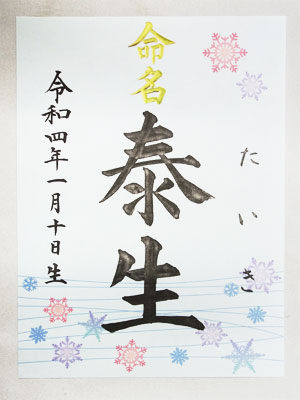 命名
たいき
泰生
令和四年一月十日生